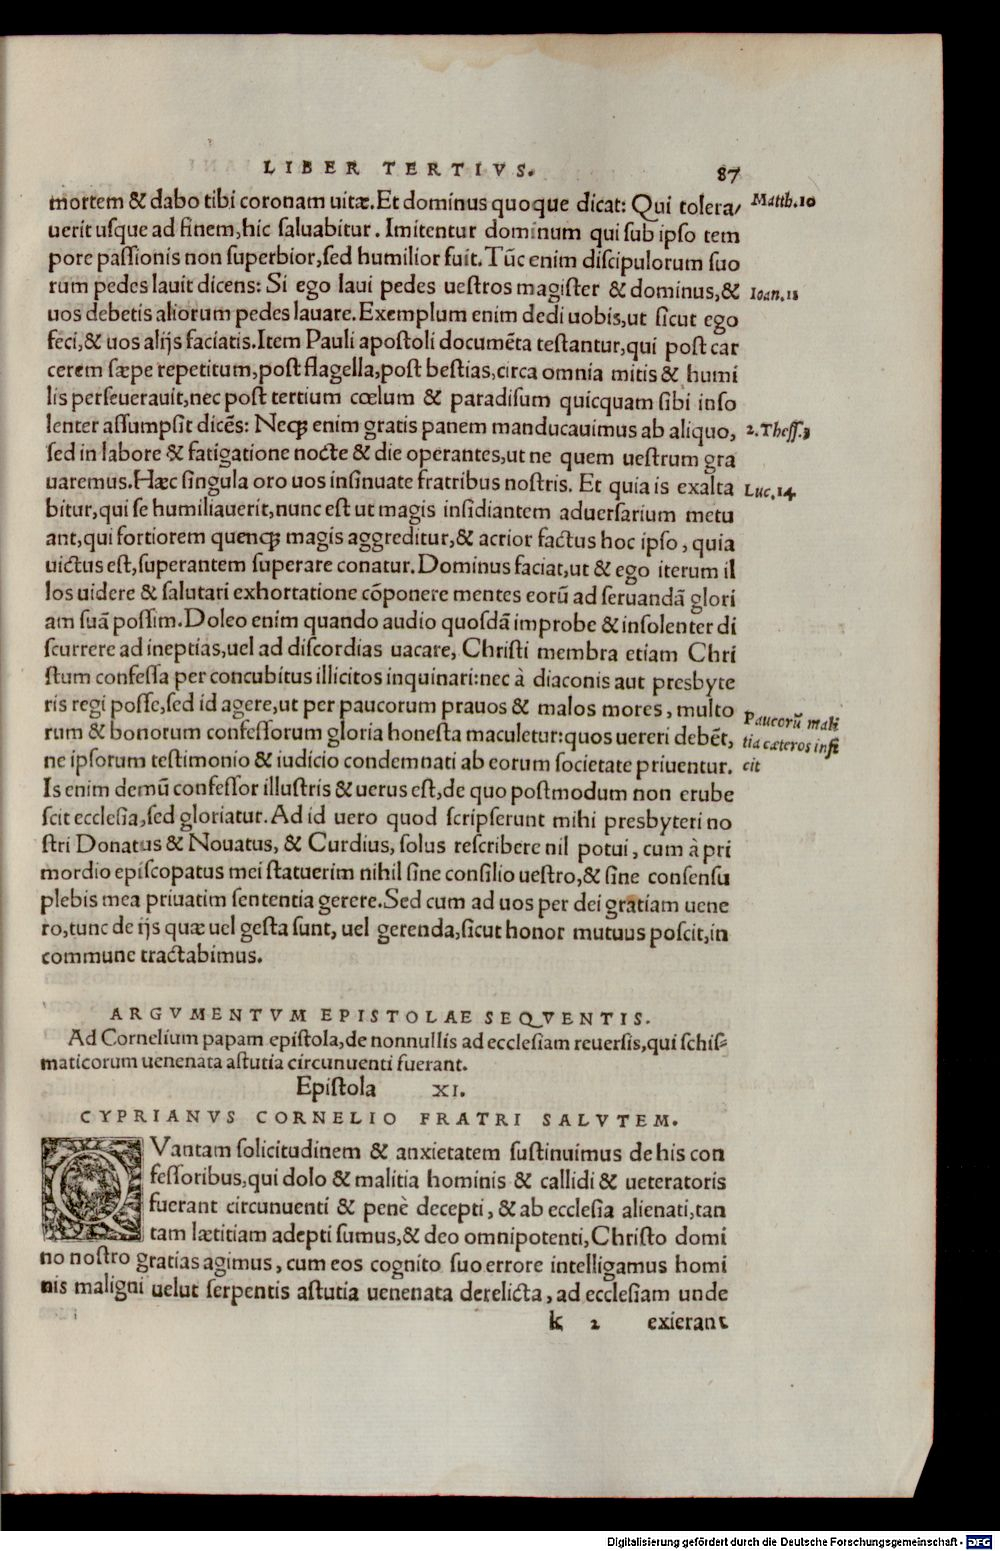 LIBER TERTIVS. 87
mortem & dabo tibi coronam uitæ. Et dominus quoque dicat: Qui tolera/ Matth. 10
uerit usque ad finem, hic saluabitur. Imitentur dominum qui sub ipso tem
pore passionis non superbior, sed humilior fuit. Tūc enim discipulorum suo
rum pedes lauit dicens: Si ego laui pedes uestros magister & dominus, & Ioan. 13
uos debetis aliorum pedes lauare. Exemplum enim dedi uobis, ut sicut ego
feci, & uos alijs faciatis. Item Pauli apostoli documēta testantur, qui post car
cerem sæpe repetitum, post flagella, post bestias, circa omnia mitis & humi
lis perseuerauit, nec post tertium cœlum & paradisum quicquam sibi inso
lenter assumpsit dicēs: Neq; enim gratis panem manducauimus ab aliquo, 2. Thess. 3
sed in labore & fatigatione nocte & die operantes, ut ne quem uestrum gra
uaremus. Hæc singula oro uos insinuate fratribus nostris. Et quia is exalta Luc. 14
bitur, qui se humiliauerit, nunc est ut magis insidiantem aduersarium metu
ant, qui fortiorem quenq; magis aggreditur, & acrior factus hoc ipso, quia
uictus est, superantem superare conatur. Dominus faciat, ut & ego iterum il
los uidere & salutari exhortatione cōponere mentes eorū ad seruandā glori
am suā possim. Doleo enim quando audio quosdā improbe & insolenter di
scurrere ad ineptias, uel ad discordias uacare, Christi membra etiam Chri
stum confessa per concubitus illicitos inquinari: nec à diaconis aut presbyte
ris regi posse, sed id agere, ut per paucorum prauos & malos mores, multo Paucorū mali
rum & bonorum confessorum gloria honesta maculetur: quos uereri debēt, tia cæteros infi
ne ipsorum testimonio & iudicio condemnati ab eorum societate priuentur. cit
Is enim demū confessor illustris & uerus est, de quo postmodum non erube
scit ecclesia, sed gloriatur. Ad id uero quod scripserunt mihi presbyteri no
stri Donatus & Nouatus, & Curdius, solus rescribere nil potui, cum à pri
mordio episcopatus mei statuerim nihil sine consilio uestro, & sine consensu
plebis mea priuatim sententia gerere. Sed cum ad uos per dei gratiam uene
ro, tunc de ijs quæ uel gesta sunt, uel gerenda, sicut honor mutuus poscit, in
commune tractabimus.
ARGVMENTVM EPISTOLAE SEQVENTIS.
Ad Cornelium papam epistola, de nonnullis ad ecclesiam reuersis, qui schis-
maticorum uenenata astutia circunuenti fuerant.
Epistola XI.
CYPRIANVS CORNELIO FRATRI SALVTEM.
QVantam solicitudinem & anxietatem sustinuimus de his con
fessoribus, qui dolo & malitia hominis & callidi & ueteratoris
fuerant circunuenti & penè decepti, & ab ecclesia alienati, tan
tam lætitiam adepti sumus, & deo omnipotenti, Christo domi
no nostro gratias agimus, cum eos cognito suo errore intelligamus homi
nis maligni uelut serpentis astutia uenenata derelicta, ad ecclesiam unde
k 2 exierant
Digitalisierung gefördert durch die Deutsche Forschungsgemeinschaft - DFG